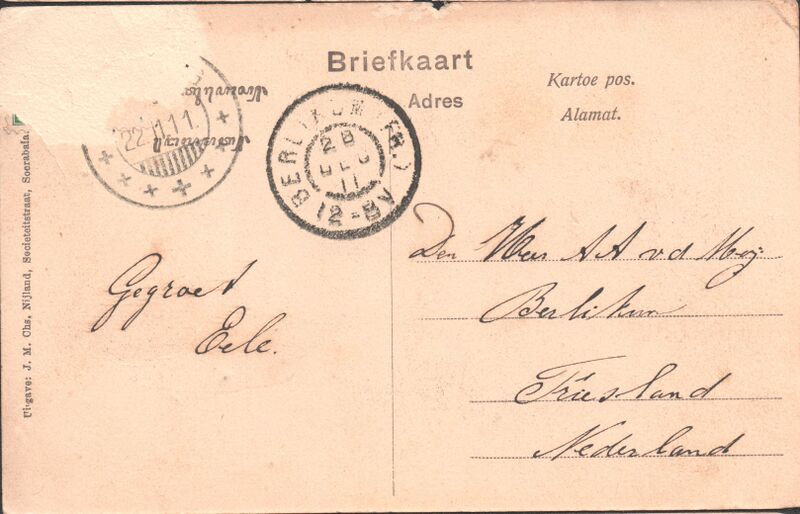 Briefkaart
Adres
Kartoe pos.
Alamat.
22.11.11.
BERLIKUM (FR.)
12-8V
11
Uitgave: J. M. Chs. Nijland, Societeitstraat, Soerabaia.
Gegroet
Eele.
Den Heer A A v d Meij
Berlikum
Friesland
Nederland